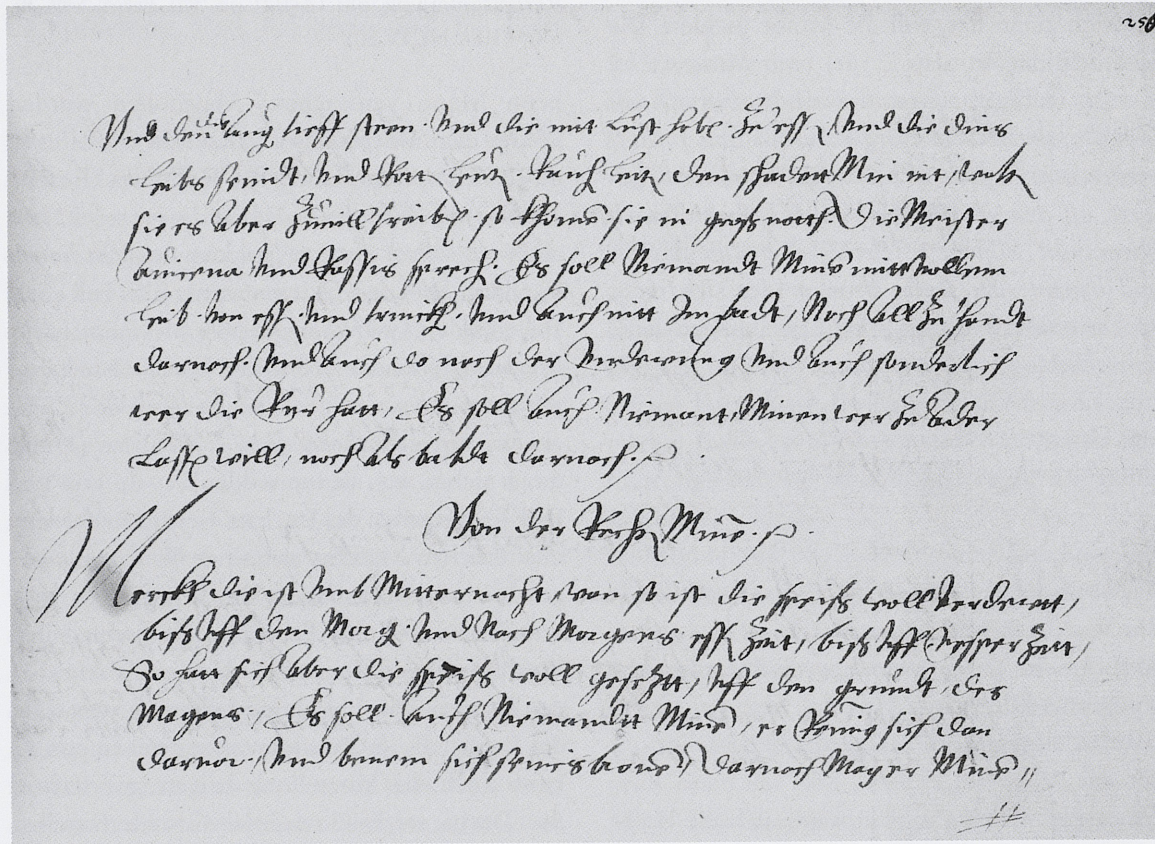 256
Vnd den Aug tieff steen. Vnd die mit Lust hab. Zu ess. Vnd die dins
leibs seindt, Vnd Rott leut, Rauch leut, den schadett Min nit,
sie es aber Zuuill treib. so khomē sie in groß noth. Die Meister
Auicena Vnd Rassis sprech. Es soll Niemandt Minē mitt vollem
leib. von ess. Vnd trinckh. Vnd auch nitt Im badt, Noch all Zu handt
darnoch. Vnd auch do noch der Verdewung Vnd auch sonderlich
wer die Rur hatt, Es soll auch Niemant Minen wer Zu Ader
Lass will, noch als baldt darnoch.
Von der Recht Minē.
Merckh die ist vmb Mitternacht, wan so ist die speiß woll Verdewtt,
biß vff den Morg. Vnd Nach Morgens ess Zeit, biß vff Vesper Zeit,
So hatt sich aber die speiß woll gesetzt, vff den grundt, des
Magens, Es soll auch Niemandtt Minē, er Reinig sich dan
daruor, Vnd benem sich seines, Darnoch Mag er Minē